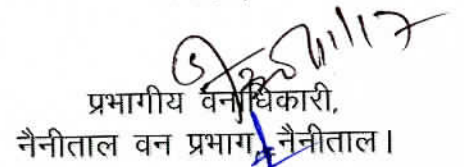 प्रभागीय वनाधिकारी,
नैनीताल वन प्रभाग, नैनीताल।